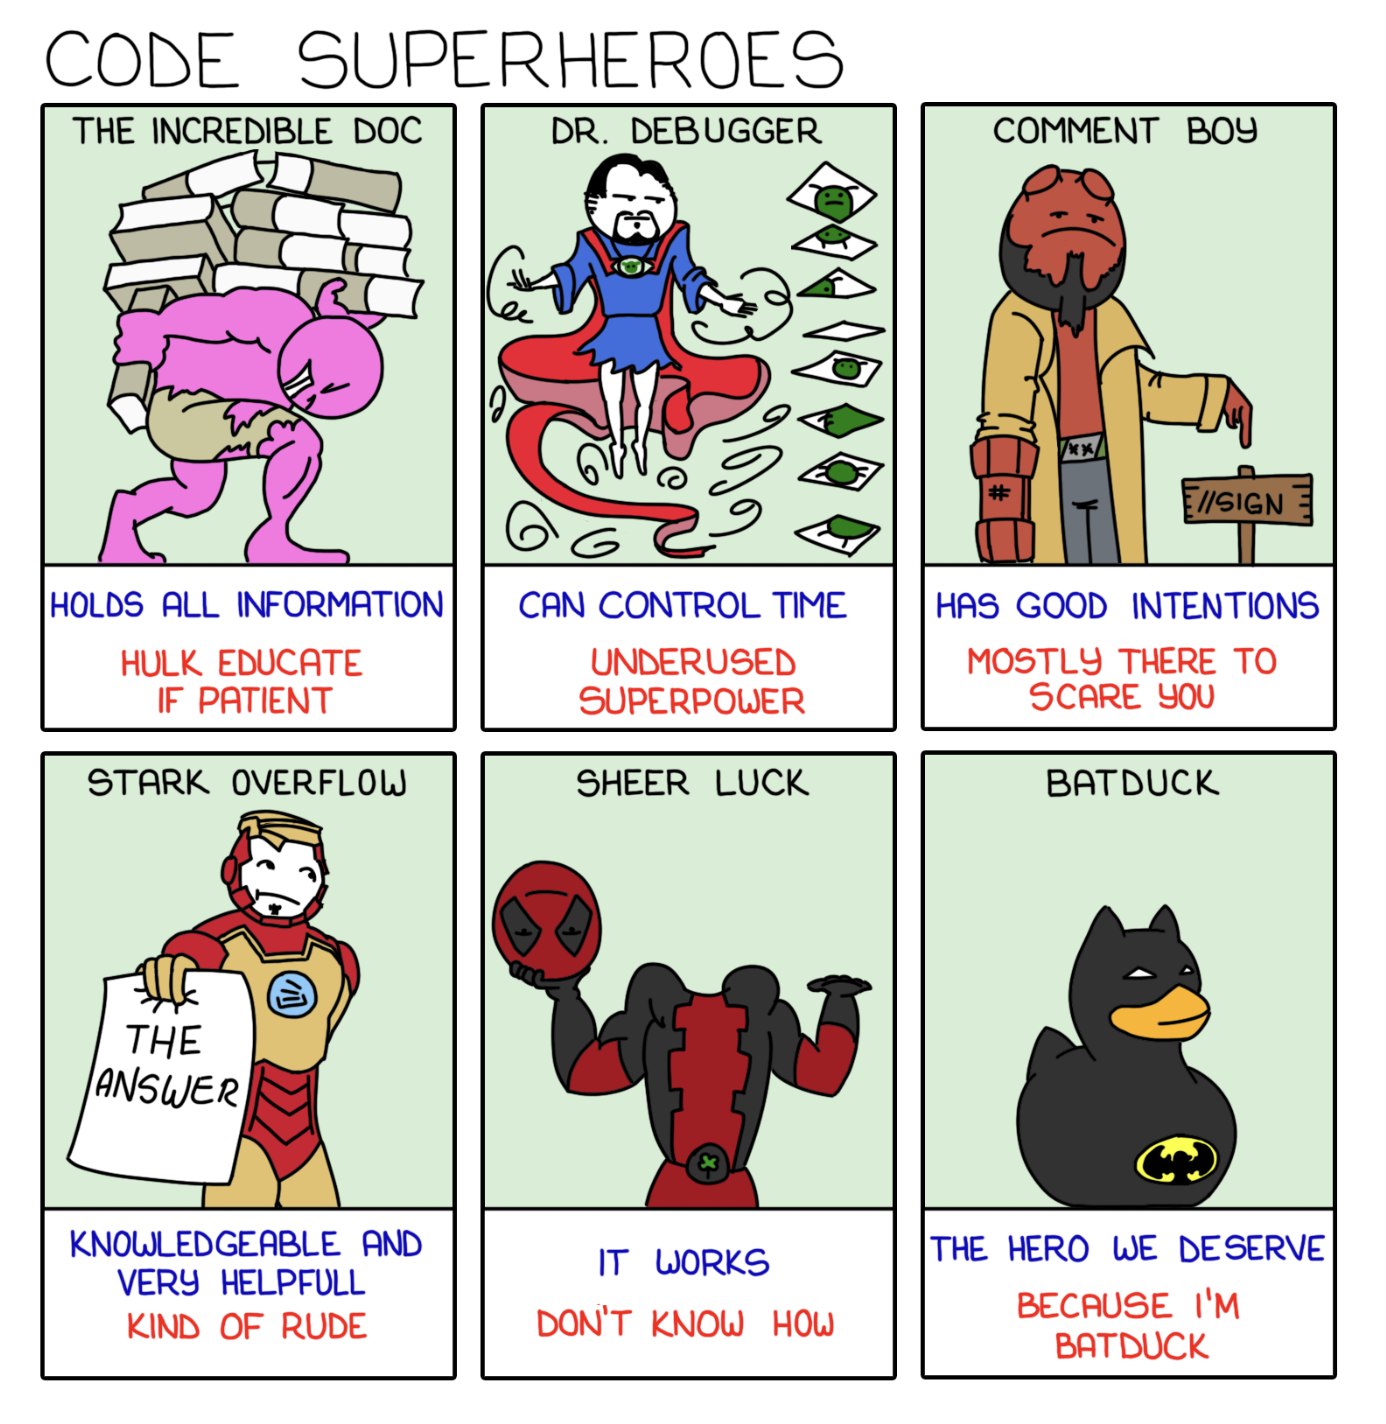 CODE SUPERHEROES
THE INCREDIBLE DOC
HOLDS ALL INFORMATION
HULK EDUCATE
IF PATIENT
DR. DEBUGGER
CAN CONTROL TIME
UNDERUSED
SUPERPOWER
COMMENT BOY
#
//SIGN
HAS GOOD INTENTIONS
MOSTLY THERE TO
SCARE YOU
STARK OVERFLOW
THE
ANSWER
KNOWLEDGEABLE AND
VERY HELPFULL
KIND OF RUDE
SHEER LUCK
IT WORKS
DON'T KNOW HOW
BATDUCK
THE HERO WE DESERVE
BECAUSE I'M
BATDUCK